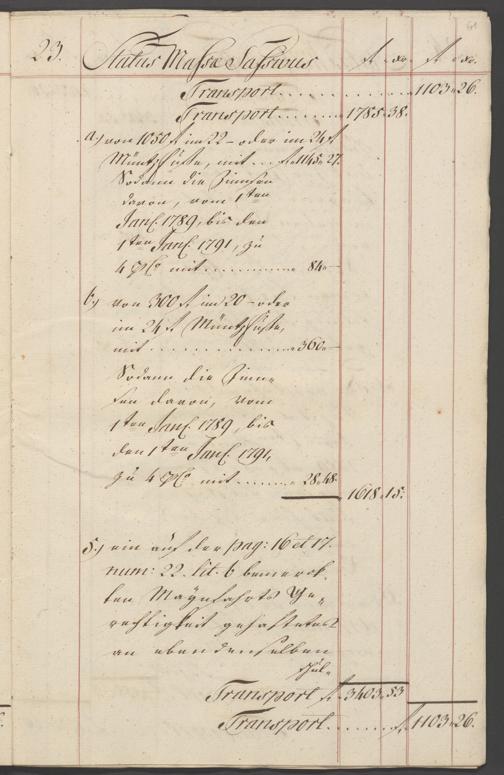 23. Status Massæ Passivus fl. xr. fl. xr.
Transport . . . . . . . . . . 1103 " 26.
Transport . . . . . . . 1785 " 38.
a.) von 1050 fl im 22 - oder im 24 fl
Müntzfuße, mit . . . fl. 1145 " 27.
Sodann die Zinnsen
davon, vom 1ten
Jan. 1789, bis den
1ten Jan. 1791, zu
4 pC mit . . . . . . . . . . 84 " —
b.) von 300 fl im 20 - oder
im 24 fl Müntzfuße,
mit . . . . . . . . . . . . . 360 " —
Sodann die Zinn-
sen davon, vom
1ten Jan. 1789, bis
den 1ten Jan. 1791,
zu 4 pC mit . . . . . . 28 " 48.
1618 " 15.
5.) ein auf der pag: 16 et 17.
num: 22. lit. b bemerck-
ten Maynfahrts Ge-
rechtigkeit gehaftetes
an eben denselben
schul-
Transport fl. 3403 " 53
Transport . . . . . . . fl. 1103 " 26.